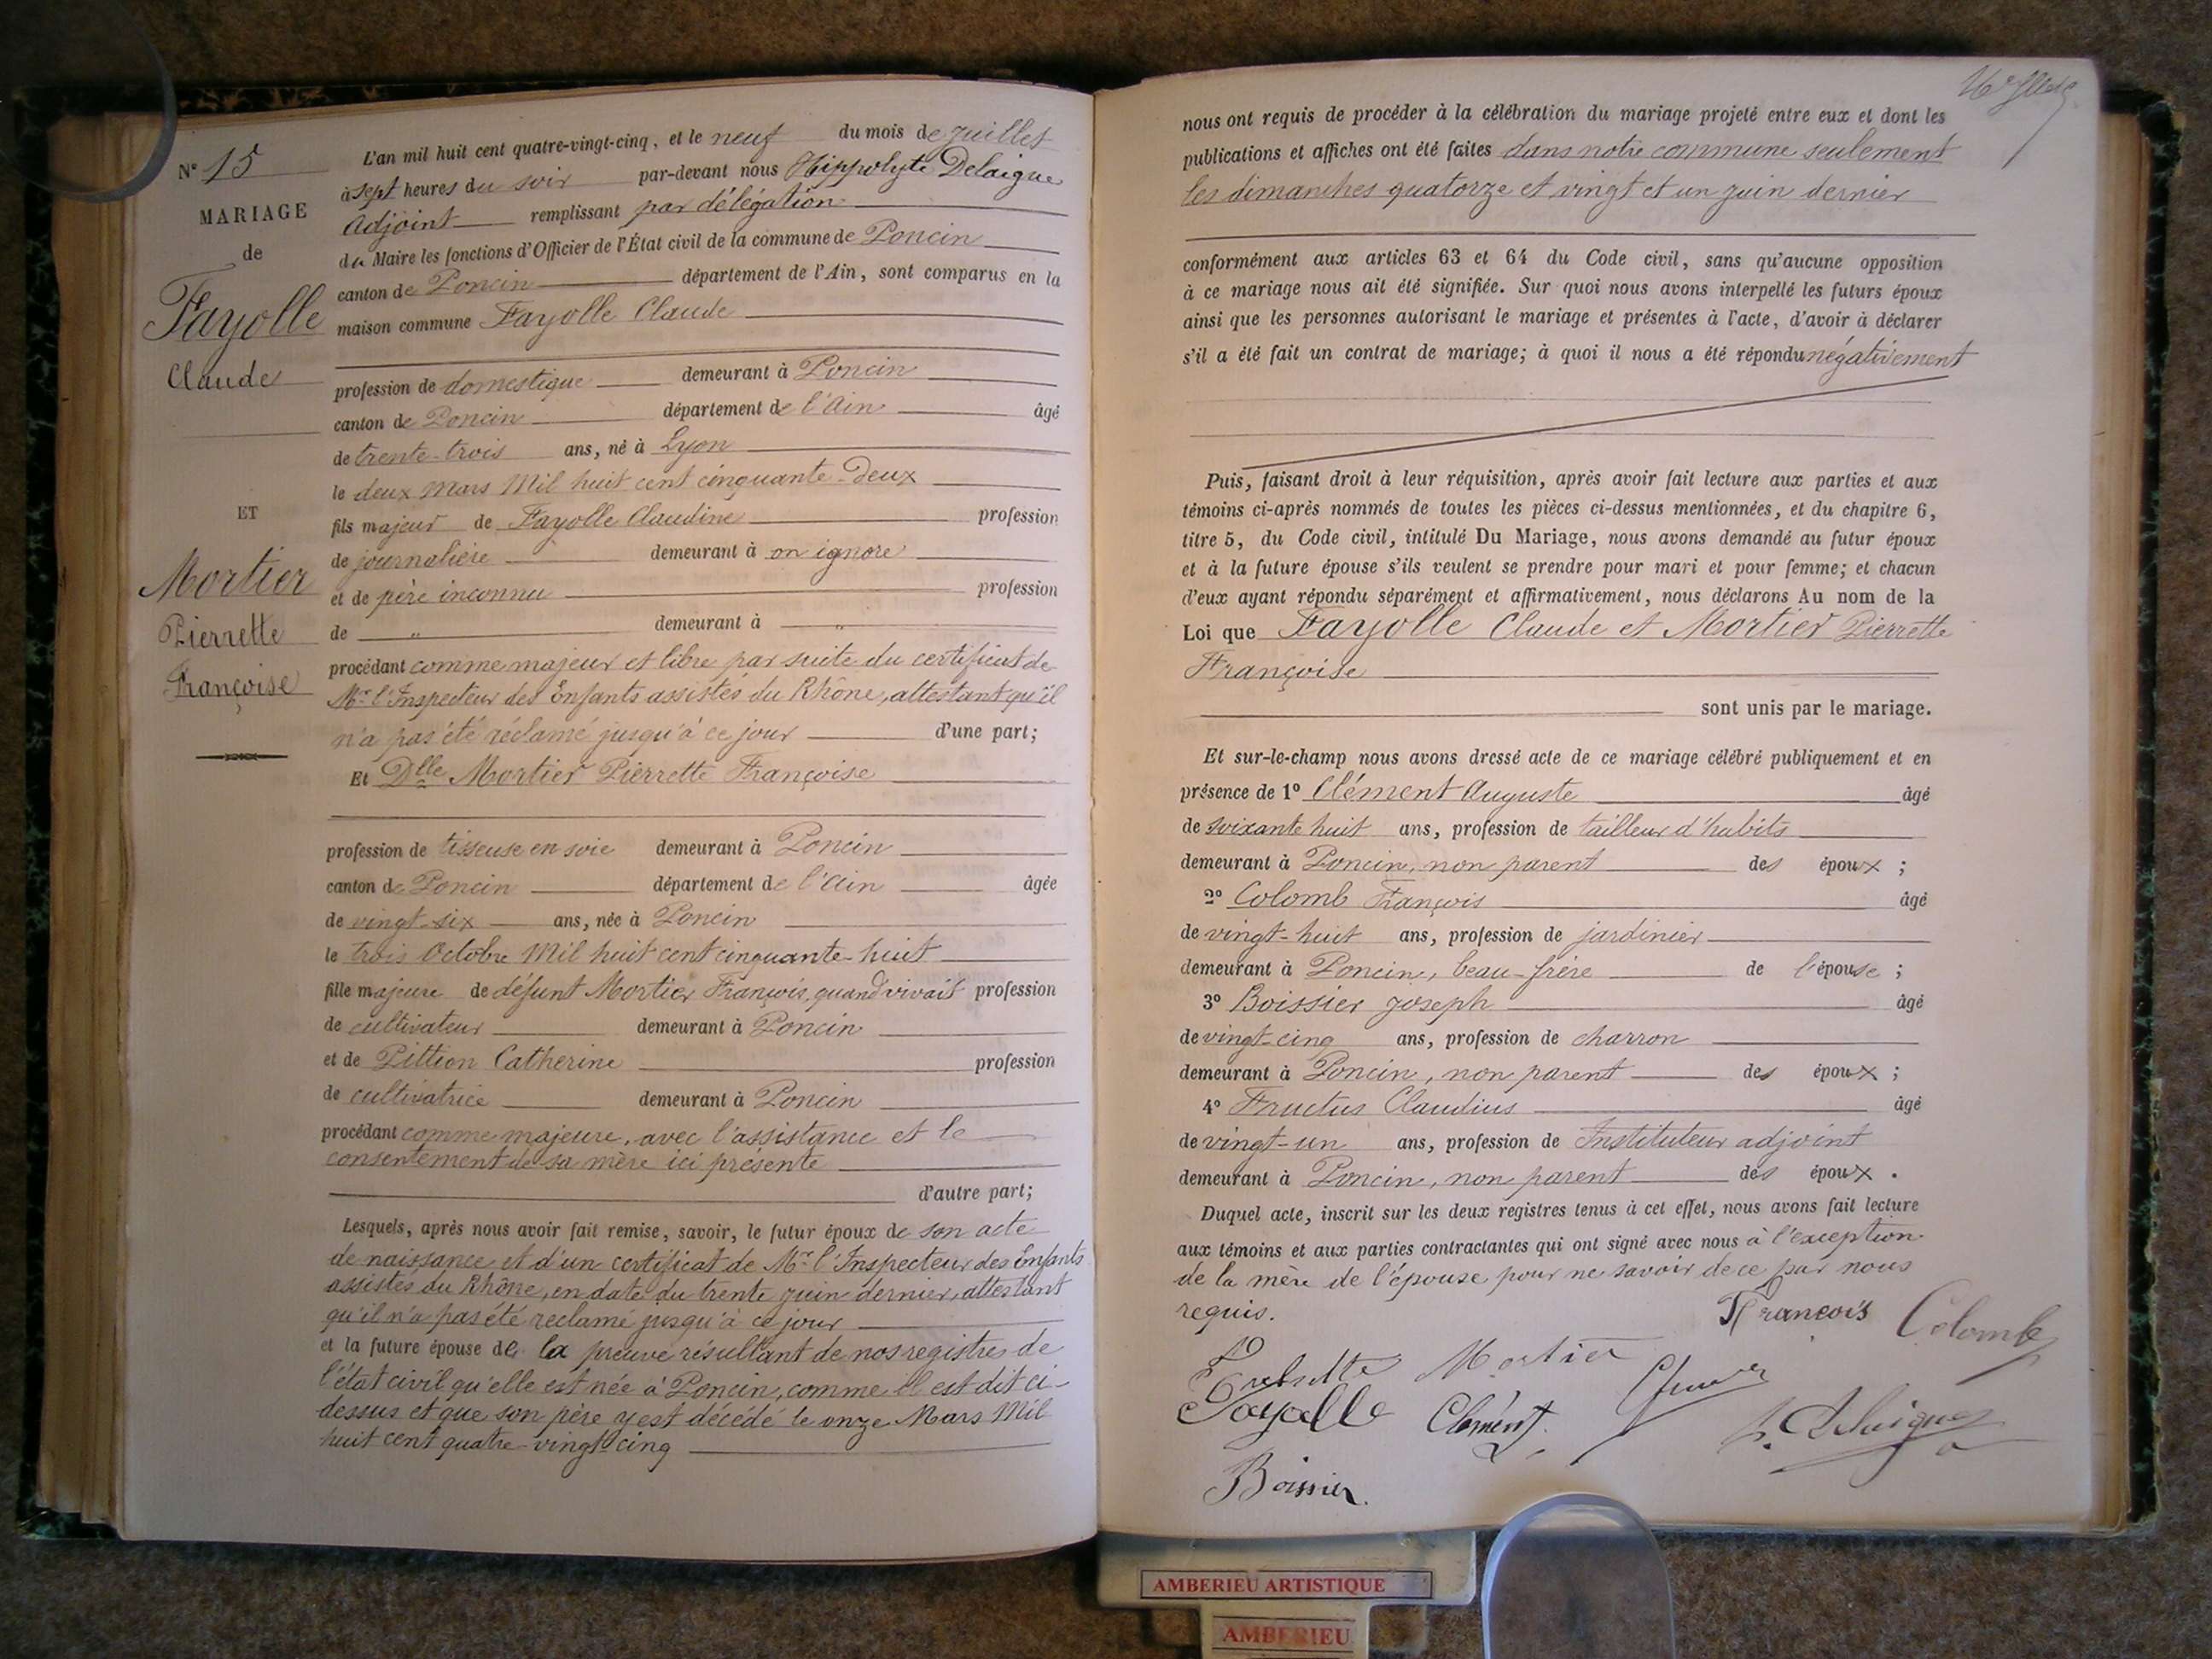 N° 15
MARIAGE
de
Fayolle
Claude
ET
Mortier
Pierrette
Françoise
L'an mil huit cent quatre-vingt-cinq, et le neuf du mois de juillet
à sept heures du soir par-devant nous Hippolyte Delaigue
Adjoint remplissant par délégation
du Maire les fonctions d'Officier de l'État civil de la commune de Poncin
canton de Poncin département de l'Ain, sont comparus en la
maison commune Fayolle Claude
profession de domestique demeurant à Poncin
canton de Poncin département de l'Ain âgé
de trente-trois ans, né à Lyon
le deux Mars Mil huit cent cinquante-Deux
fils majeur de Fayolle Claudine profession
de journalière demeurant à on ignore
et de père inconnu profession
de " demeurant à "
procédant comme majeur et libre par suite du certificat de
Mr l'Inspecteur des Enfants assistés du Rhône, attestant qu'il
n'a pas été réclamé jusqu'à ce jour d'une part;
Et Dlle Mortier Pierrette Françoise
profession de tisseuse en soie demeurant à Poncin
canton de Poncin département de l'Ain âgée
de vingt-six ans, née à Poncin
le trois Octobre Mil huit cent cinquante-huit
fille majeure de défunt Mortier François, quand vivait profession
de cultivateur demeurant à Poncin
et de Pittion Catherine profession
de cultivatrice demeurant à Poncin
procédant comme majeure, avec l'assistance et le
consentement de sa mère ici présente
d'autre part;
Lesquels, après nous avoir fait remise, savoir, le futur époux de son acte
de naissance et d'un certificat de Mr l'Inspecteur des Enfants
assistés du Rhône, en date du trente juin dernier, attestant
qu'il n'a pas été reclamé jusqu'à ce jour
et la future épouse de la preuve résultant de nos registres de
l'état civil qu'elle est née à Poncin, comme il est dit ci-
dessus et que son père y est décédé le onze Mars Mil
huit cent quatre-vingt-cinq
nous ont requis de procéder à la célébration du mariage projeté entre eux et dont les
publications et affiches ont été faites dans notre commune seulement
les dimanches quatorze et vingt et un juin dernier
conformément aux articles 63 et 64 du Code civil, sans qu'aucune opposition
à ce mariage nous ait été signifiée. Sur quoi nous avons interpellé les futurs époux
ainsi que les personnes autorisant le mariage et présentes à l'acte, d'avoir à déclarer
s'il a été fait un contrat de mariage; à quoi il nous a été répondu négativement
Puis, faisant droit à leur réquisition, après avoir fait lecture aux parties et aux
témoins ci-après nommés de toutes les pièces ci-dessus mentionnées, et du chapitre 6,
titre 5, du Code civil, intitulé Du Mariage, nous avons demandé au futur époux
et à la future épouse s'ils veulent se prendre pour mari et pour femme; et chacun
d'eux ayant répondu séparément et affirmativement, nous déclarons Au nom de la
Loi que Fayolle Claude et Mortier Pierrette
Françoise
sont unis par le mariage.
Et sur-le-champ nous avons dressé acte de ce mariage célébré publiquement et en
présence de 1° Clément Auguste âgé
de soixante huit ans, profession de tailleur d'habits
demeurant à Poncin, non parent des époux ;
2° Colomb François âgé
de vingt-huit ans, profession de jardinier
demeurant à Poncin, beau-frère de l'épouse ;
3° Boissier Joseph âgé
de vingt-cinq ans, profession de charron
demeurant à Poncin, non parent des époux ;
4° Fructus Claudius âgé
de vingt-un ans, profession de Instituteur adjoint
demeurant à Poncin, non parent des époux .
Duquel acte, inscrit sur les deux registres tenus à cet effet, nous avons fait lecture
aux témoins et aux parties contractantes qui ont signé avec nous à l'exception
de la mère de l'épouse pour ne savoir de ce par nous
requis.
François Colomb
Mortier
Fayolle Clément H. Delaigue
Boissier
AMBERIEU ARTISTIQUE
AMBERIEU